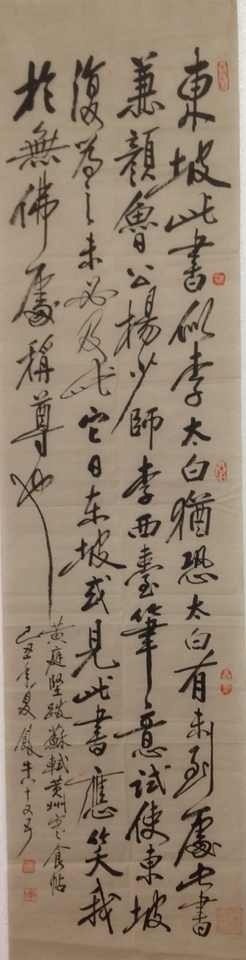 東坡此書似李太白猶恐太白有未到處此書
兼顏魯公楊少師李西臺筆意試使東坡
復為之未必及此它日东坡或見此書應笑我
於無佛處稱尊也
黃庭堅跋蘇軾黃州寒食帖
己丑夏